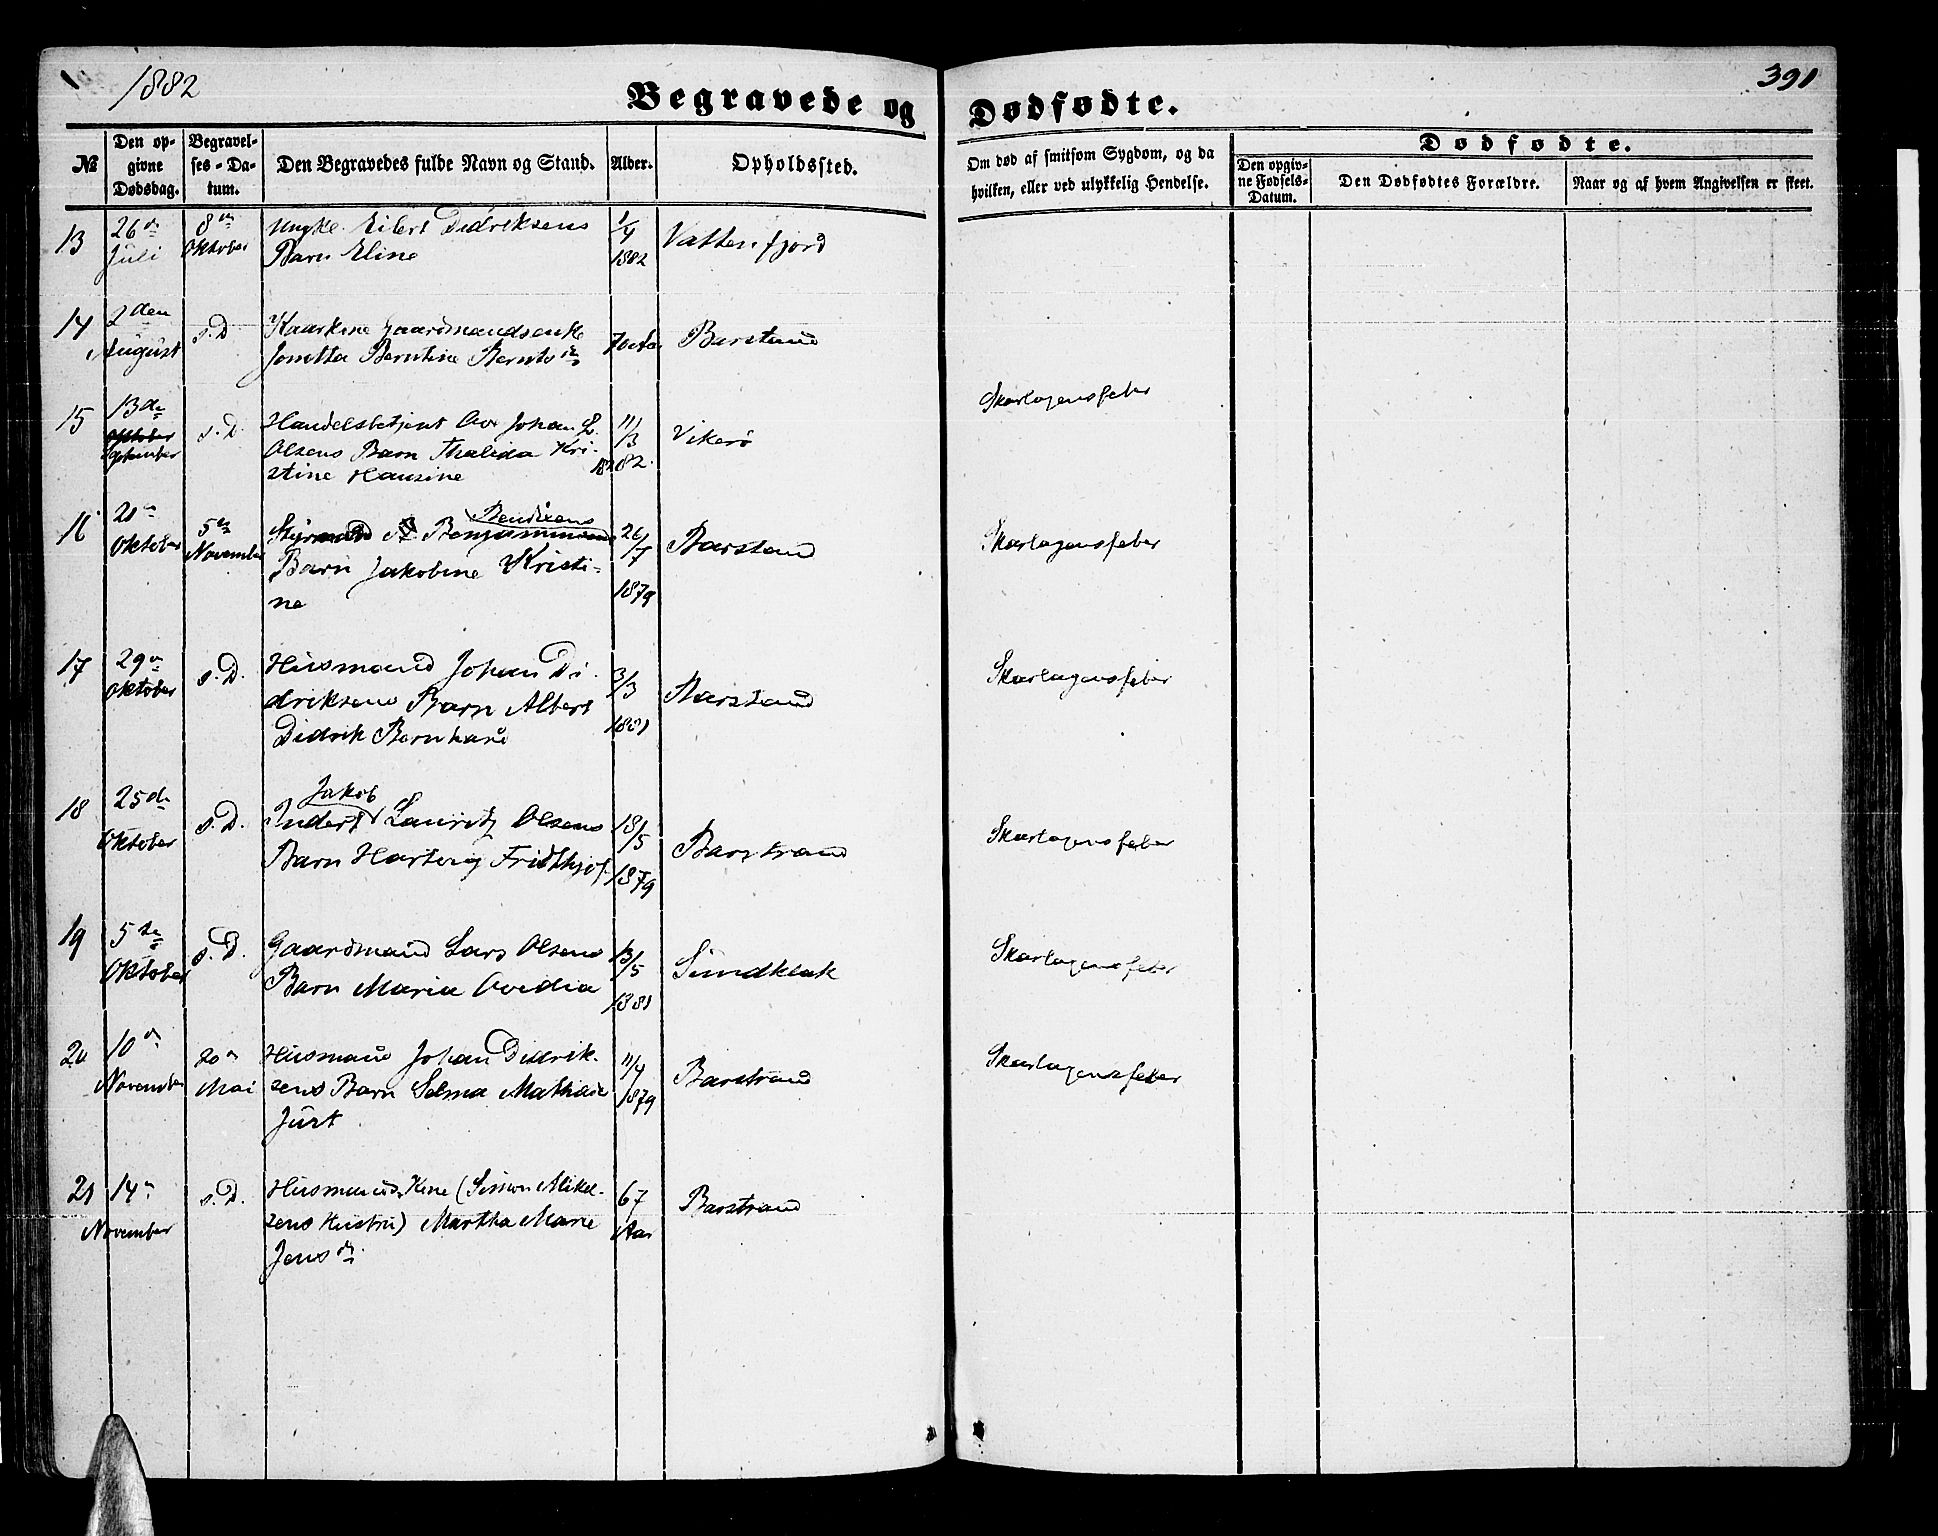 1882
391
Begravede og Dødfødte.
№
Den op-
givne
Dødsdag.
Begravel-
ses-Da-
tum.
Den Begravedes fulde Navn og Stand.
Alder.
Opholdssted.
Om død af smitsom Sygdom, og da
hvilken, eller ved ulykkelig Hendelse.
Dødfødte.
Den opgiv-
ne Fødsels-
Datum.
Den Dødfødtes Forældre.
Naar og af hvem Angivelsen er skeet.
13
26de
Juli
8de
Oktober
Ungk. Eilert Didriksens
Barn Eline
1/4
1882
Vattenfjord
14
2den
August
s.D
Kaarkone Gaardmandsenke
Jonetta Berntine Berntsdr
70 Aar
Barstand
15
13de
Oktober
September
s.D.
Handelsbetjent Ove Johan L.
Olsens Barn Thalida Kri-
stine Hansine
11/
13
1882
Vikerø
Skarlagensfeber
16
20de
Oktober
5te
November
Bendixens
Styrmand Benjaminsens
Barn Jakobine Kristi-
ne
26/
7
1879
Barstand
Skarlagensfeber
17
29de
Oktober
s.D.
Husmand Johan Di-
driksens Barn Albert
Didrik Bernhard
3/3
1881
Barstand
Skarlagensfeber
18
25de
Oktober
s.D.
Jakob
Inderst Lauritz Olsens
Barn Hartvig Fridthjof
18/5
1879
Barstrand
Skarlagensfeber
19
5te
Oktober
s.D.
Gaardmand Lars Olsens
Barn Maria Ovedia
13/5
1881
Sundklak
Skarlagensfeber
20
10de
November
20de
Mai
Husmand Johan Didrik-
sens Barn Selma Mathilde
Just
11/4
1879
Barstrand
Skarlagensfeber
21
14de
November
s.D.
Husmands Kone (Simon Mikel-
sens Hustru) Martha Marie
Jensdr
67
Aar
Barstrand